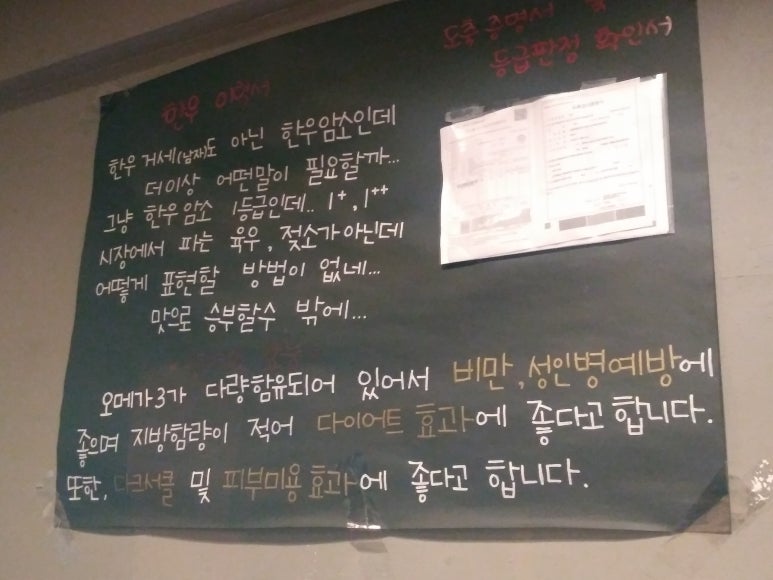 한우 이력서
도축증명서 및
등급판정 확인서
한우 거세(남자)도 아닌 한우암소인데
더이상 어떤말이 필요할까...
그냥 한우암소 1등급인데.. 1+, 1++
시장에서 파는 육우, 젖소가아닌데
어떻게 표현할 방법이 없네...
맛으로 승부할수 밖에...
오메가3가 다량함유되어 있어서 비만,성인병예방에
좋으며 지방함량이 적어 다이어트 효과에 좋다고합니다.
또한, 다크서클 및 피부미용효과에 좋다고 합니다.